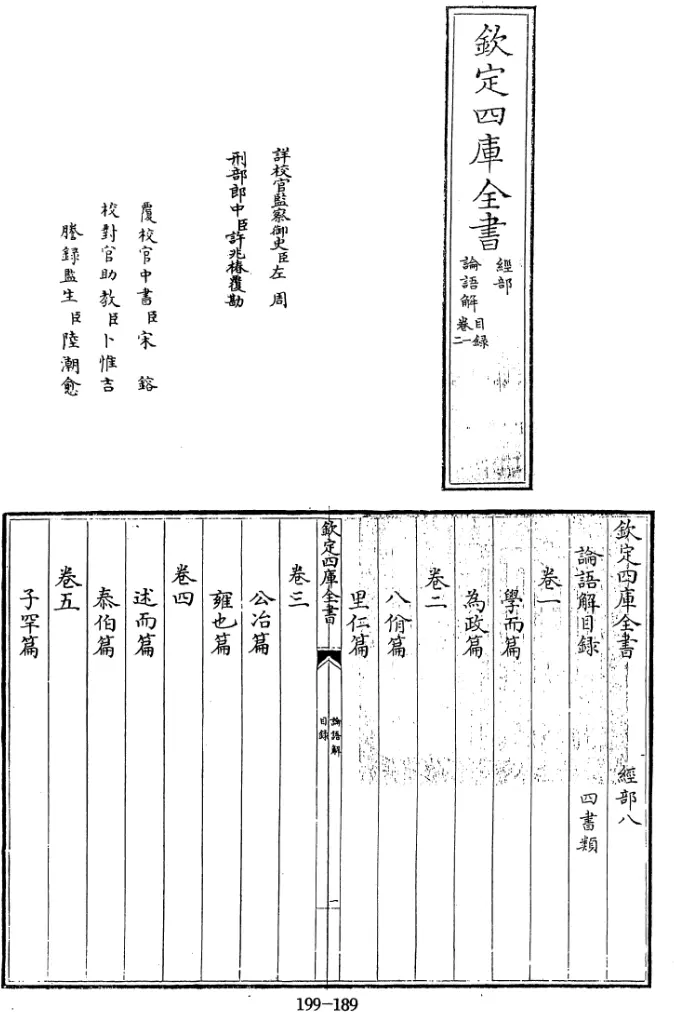 欽定四庫全書
經部
論語解
目録
卷一
二
詳校官監察御史臣左周
刑部郎中臣許兆椿覆勘
覆校官中書臣宋鎔
校對官助教臣卜惟吉
謄録監生臣陸潮愈
欽定四庫全書 經部八
論語解目録 四書類
卷一
學而篇
為政篇
卷二
八佾篇
里仁篇
欽定四庫全書
論語解
目録
一
卷三
公冶篇
雍也篇
卷四
述而篇
泰伯篇
卷五
子罕篇
199-189